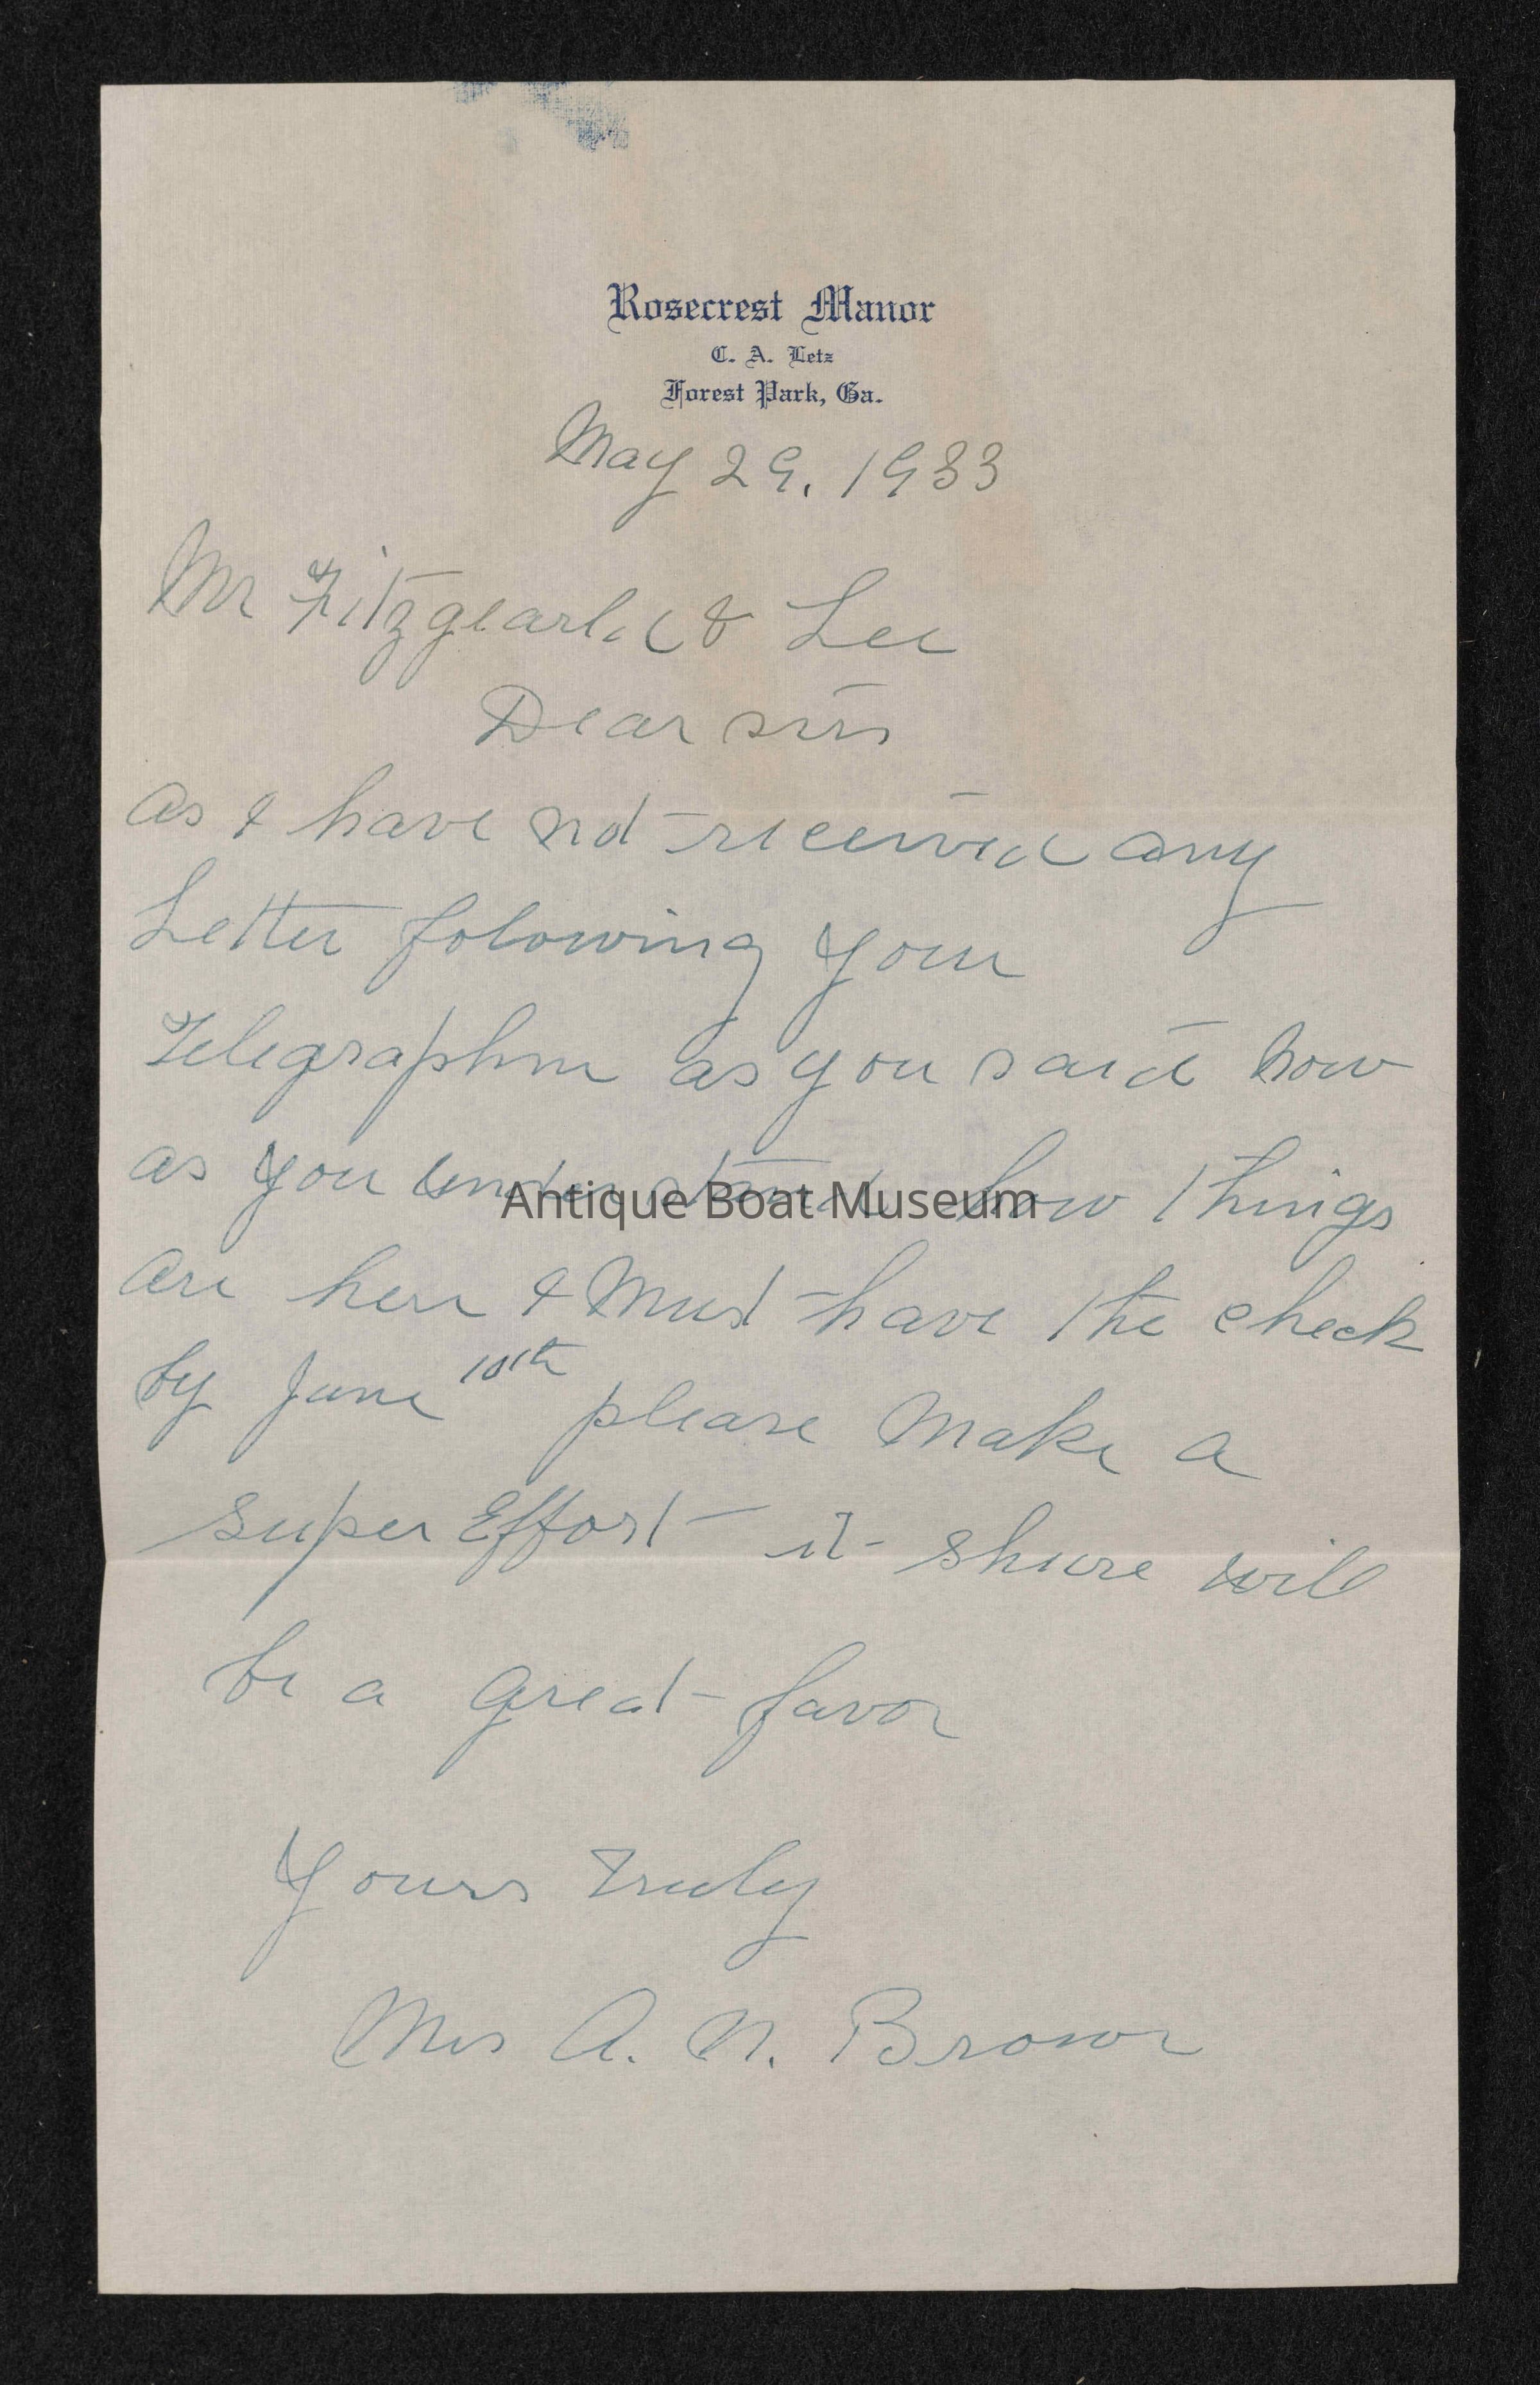 Rosecrest Manor
C. A. Letz
Forest Park, Ga.
May 29, 1933
Mr Fitzgearld & Lee
Dear sirs
as I have not received any
Letter folowing your
Telegraphm as you said now
as you understand how things
are here I Must have the check
by June 10th please Make a
super Effort it shure will
be a great favor
Yours Truly
Mrs A. N. Brown
Antique Boat Museum